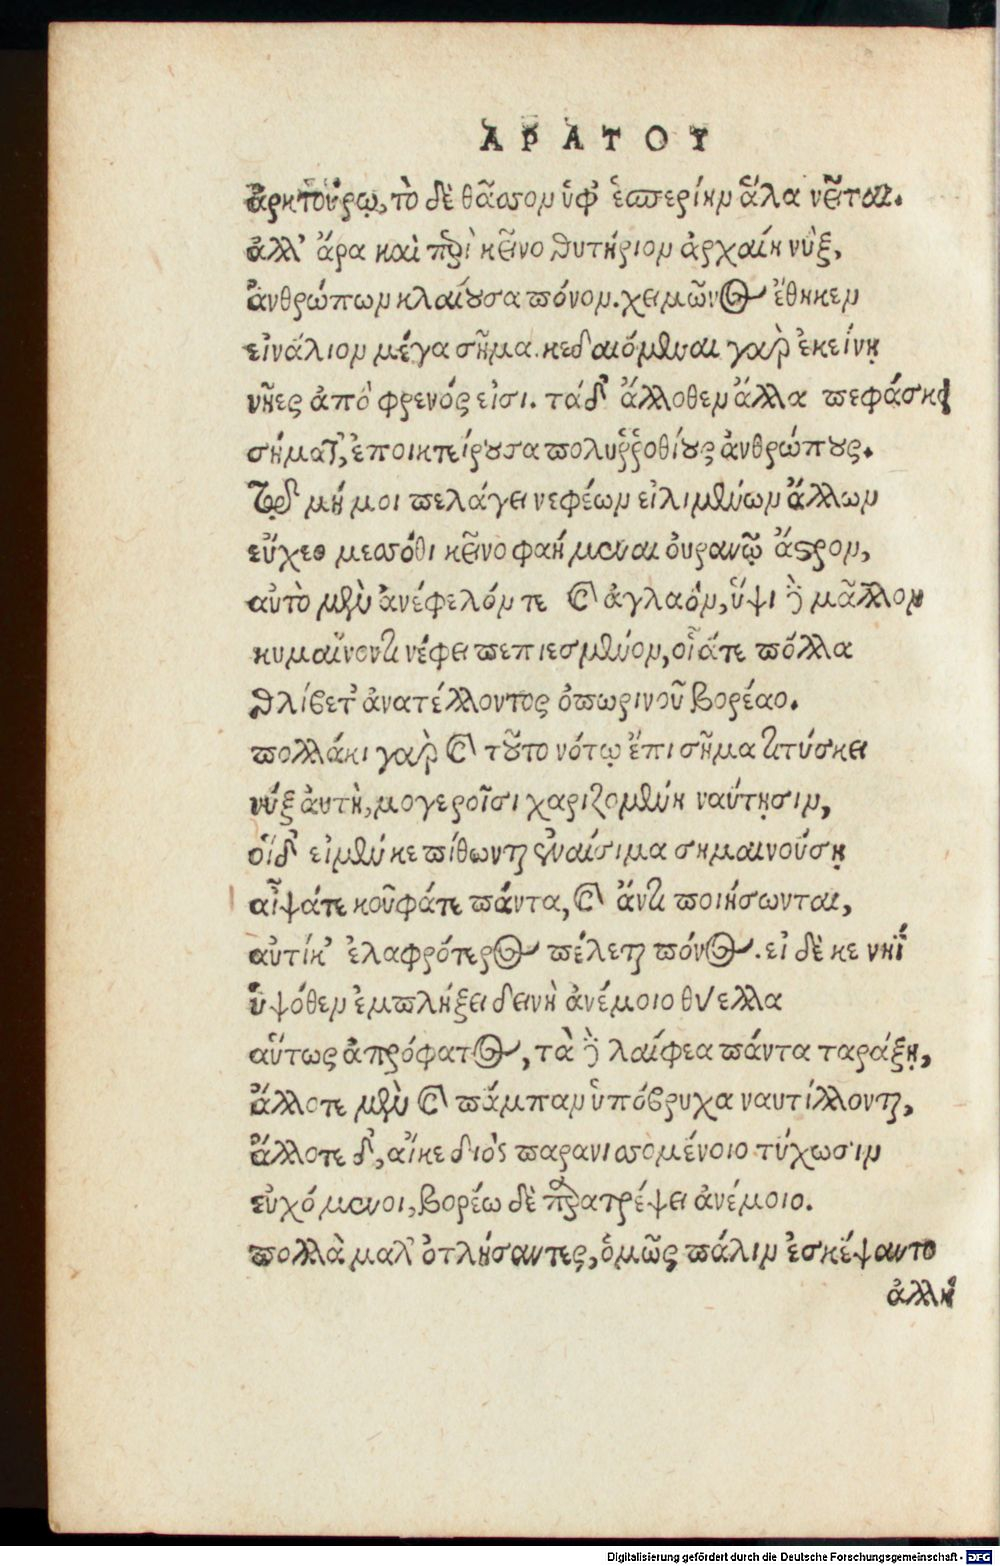 ΑΡΑΤΟΥ
ἀρκτούρῳ, τὸ δὲ θᾶσσον ὑφ' ἑσπερίην ἅλα νεῖται.
ἀλλ' ἄρα καὶ περὶ κεῖνο θυτήριον ἀρχαίη νὺξ,
ἀνθρώπων κλαίουσα πόνον. χειμῶνος ἔθηκεν
εἰνάλιον μέγα σῆμα. κεδαιόμεναι γὰρ ἐκείνῃ
νῆες ἀπὸ φρενός εἰσι. τάδ' ἄλλοθεν ἄλλα πεφάσκει
σήματ', ἐποικτείρουσα πολυῤῥοθίους ἀνθρώπους.
τῷδ μή μοι πελάγει νεφέων εἰλιμένων ἄλλων
εὔχεο μεσσόθι κεῖνο φαήμεναι οὐρανῷ ἄστρον,
αὐτὸ μὲν ἀνέφελόν τε καὶ ἀγλαόν, ὕψι δὲ μᾶλλον
κυμαίνοντι νέφει πεπιεσμένον, οἷάτε πόλλα
θλίβετ' ἀνατέλλοντος ὀπωρινοῦ βορέαο.
πολλάκι γὰρ καὶ τοῦτο νότῳ ἔπι σῆμα τιτύσκει
νύξ αὐτὴ, μογεροῖσι χαριζομένη ναύτῃσιν,
οἵδ' εἰμένκε πίθωνται ἐναίσιμα σημαινούσῃ
αἶψάτε κοῦφάτε πάντα, καὶ ἄντι ποιήσωνται,
αὐτίκ' ἐλαφρότερος πέλεται πόνος. εἰ δὲ κε νηῒ
ὑψόθεν ἐμπλήξει δεινὴ ἀνέμοιο θύελλα
αὕτως ἀπρόφατος, τὰ δὲ λαίφεα πάντα ταράξῃ,
ἄλλοτε μὲν καὶ πάμπαν ὑπόβρυχα ναυτίλλονται,
ἄλλοτε δ', αἴκε διὸς παρανισσομένοιο τύχωσιν
εὐχόμενοι, βορέω δὲ παρατρέψει ἀνέμοιο.
πολλὰ μαλ' ὀτλήσαντες, ὁμῶς πάλιν ἐσκέψαντο
ἀλλή
Digitalisierung gefördert durch die Deutsche Forschungsgemeinschaft - DFG